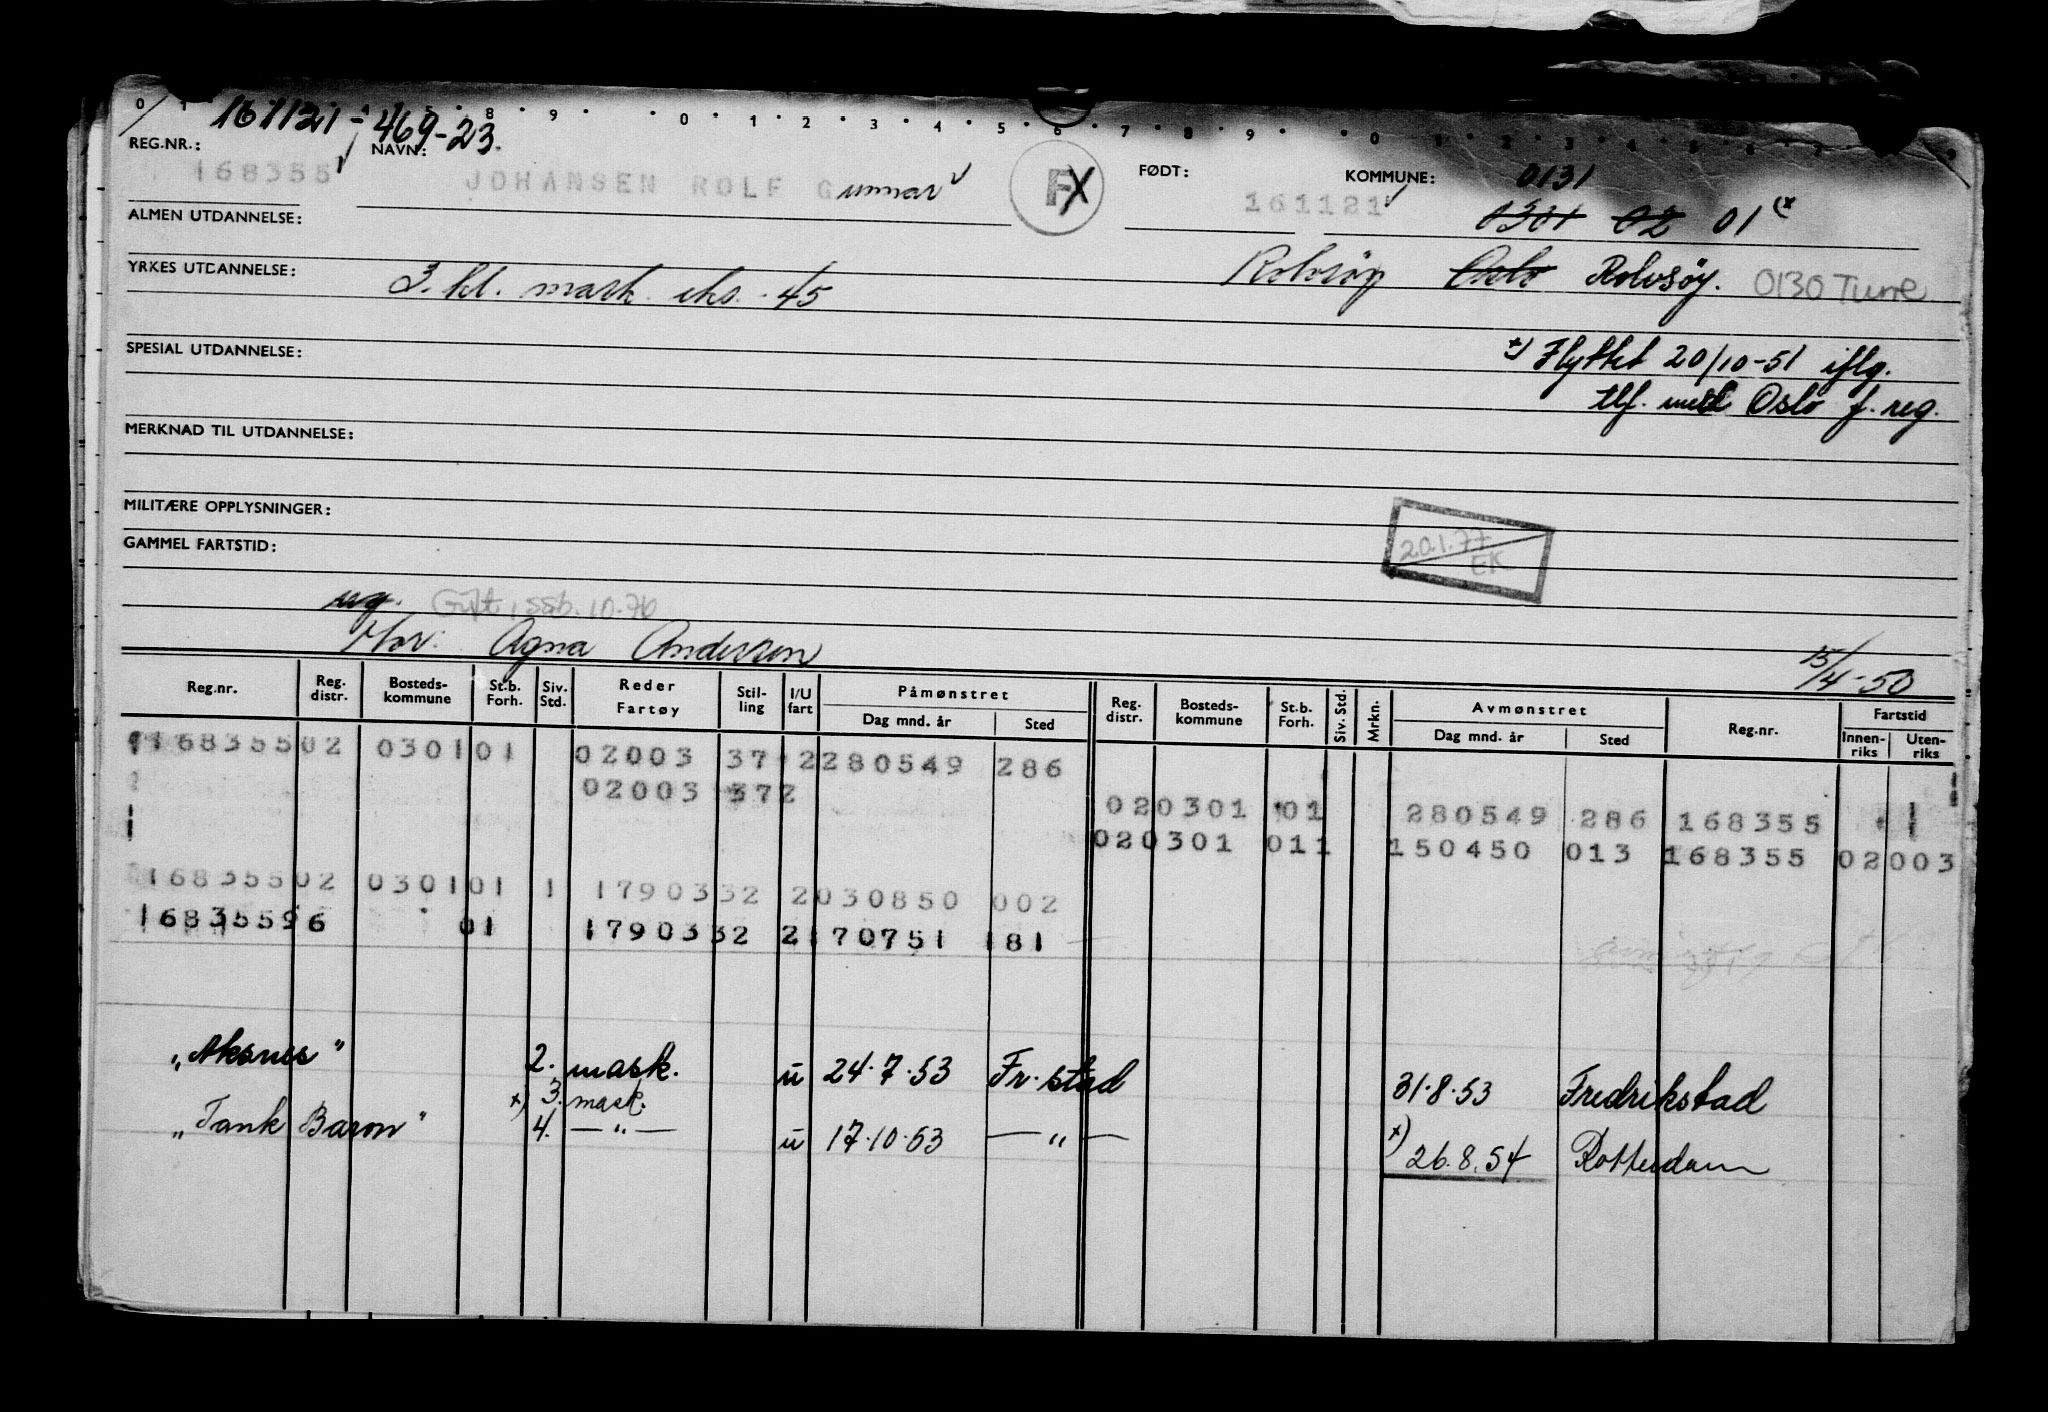 161121-46923.
REG.NR.: NAVN: FØDT: KOMMUNE: 0131
168355 JOHANSEN ROLF Gunnar FX 161121 0301 02 01 (x
ALMEN UTDANNELSE:
YRKES UTDANNELSE: 3. kl. mask. eks. -45 Rolvsøy Oslo Rolvsøy. 0130 Tune
SPESIAL UTDANNELSE: x) Flyttet 20/10-51 iflg.
tlf. med Oslo f. reg.
MERKNAD TIL UTDANNELSE:
MILITÆRE OPPLYSNINGER:
GAMMEL FARTSTID: 20.1.77 EK
ug. Gift, ssb. 10-76
Mor: Agna Andersen 15/4-50
Reg.nr. Reg. distr. Bosteds-kommune St.b. Forh. Siv. Std. Reder Fartøy Stil-ling I/U fart Påmønstret Dag mnd. år Sted Reg. distr. Bosteds-kommune St.b. Forh. Siv. Std. Mrkn. Avmønstret Dag mnd. år Sted Reg.nr. Fartstid Innen-riks Uten-riks
168355 02 0301 01 02003 37 2 280549 286
02003 372
02 0301 01 280549 286 168355 1
02 0301 011 150450 013 168355 02003
168355 02 0301 01 1 17903 32 2 030850 002
168355 96 01 17903 32 2 170751 181
"Aksnes" 2. mask. u 24.7.53 Fr.stad 31.8.53 Fredrikstad
x) 3. mask.
"Tank Baron" 4. —"— u 17.10.53 —"— x) 26.8.54 Rotterdam